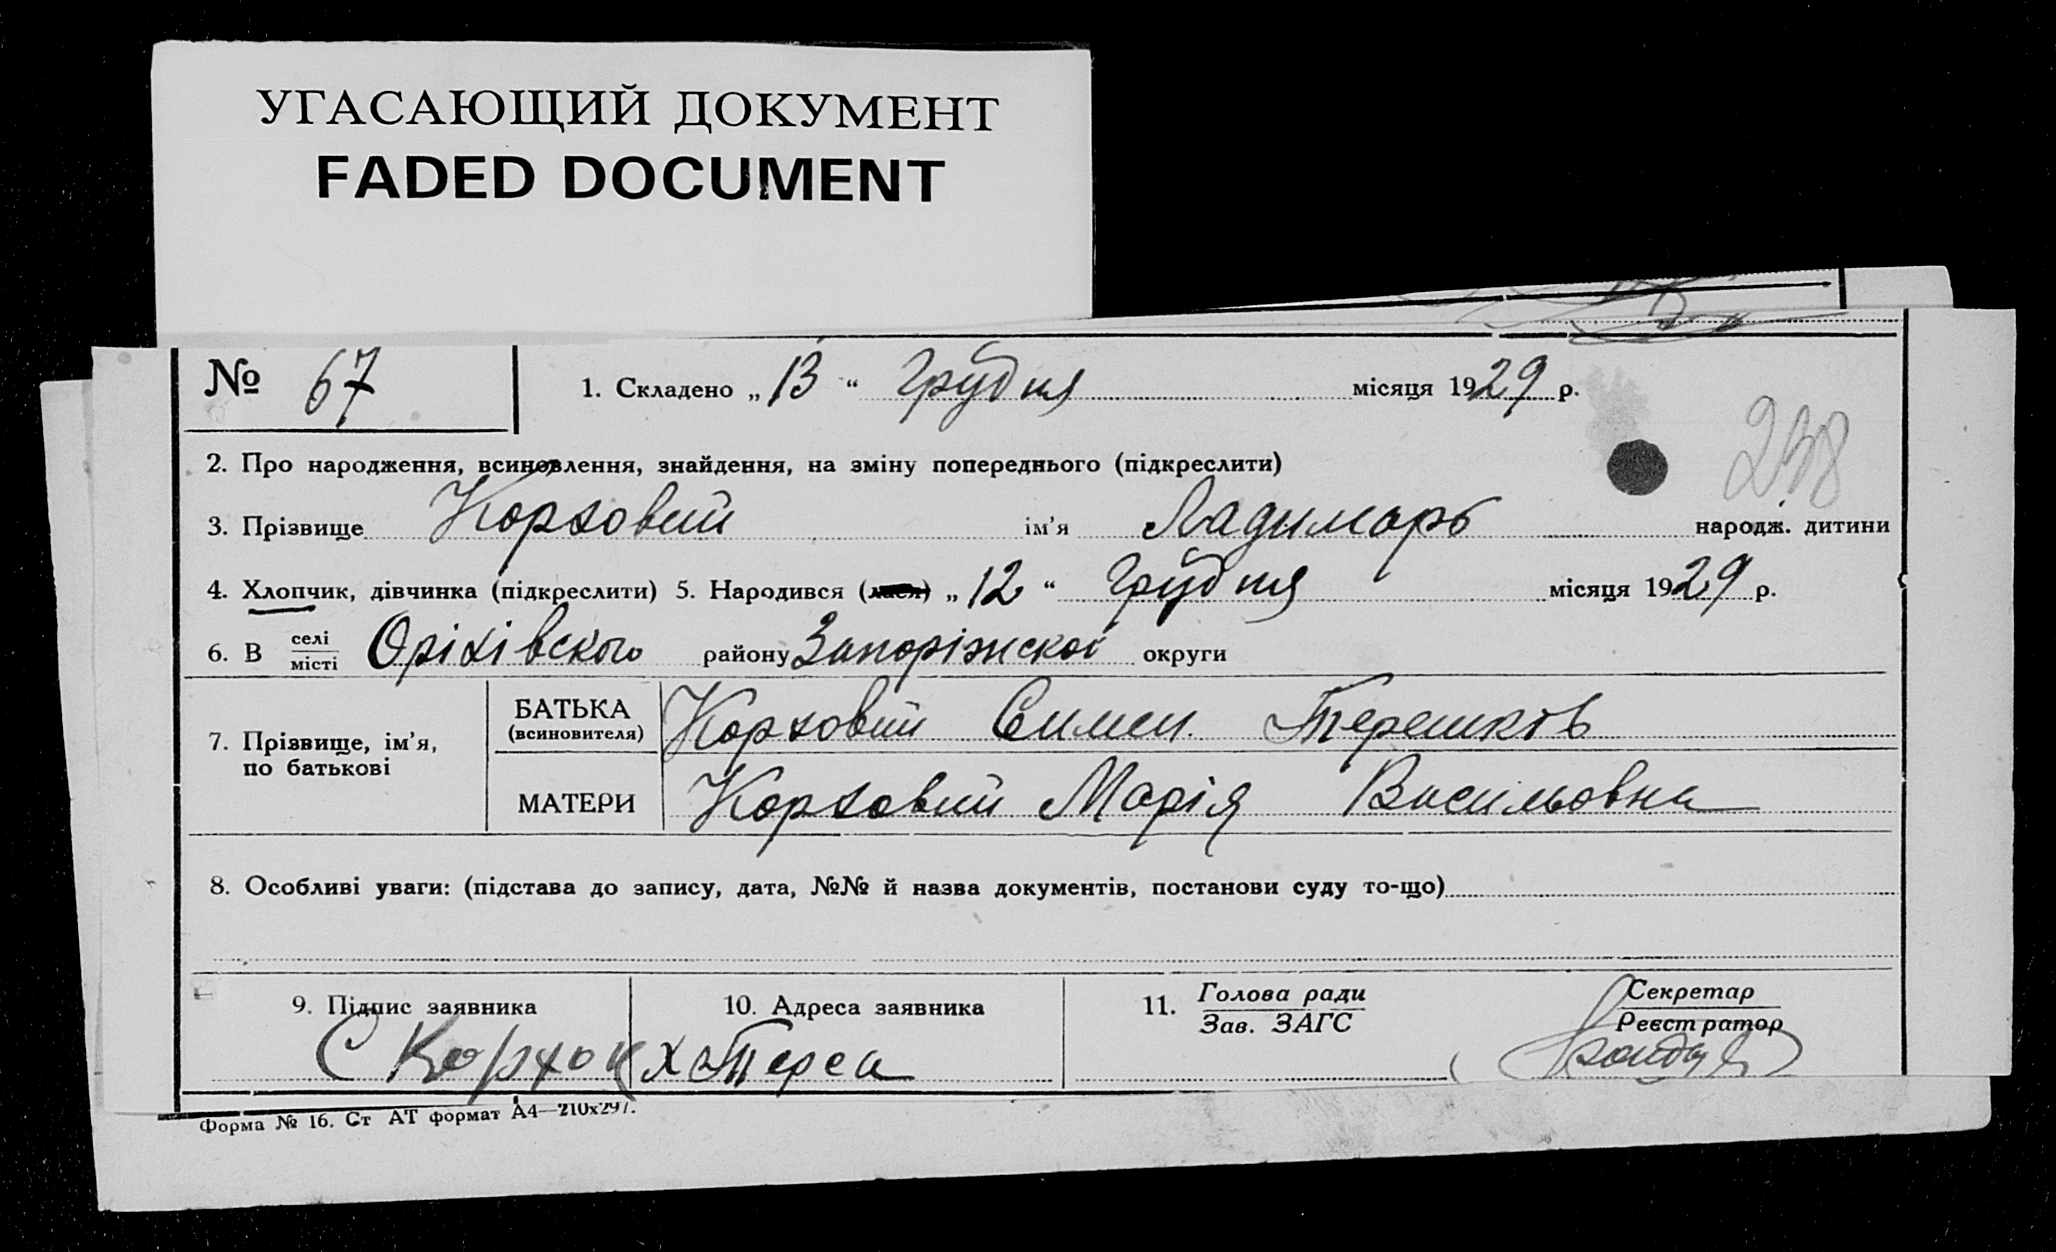 УГАСАЮЩИЙ ДОКУМЕНТ
FADED DOCUMENT
№ 67
1. Складено „ 13 “ Грудня місяця 1929 р.
238
2. Про народження, всиновлення, знайдення, на зміну попереднього (підкреслити)
3. Прізвище Корховий ім'я Ладимарь народж. дитини
4. Хлопчик, дівчинка (підкреслити) 5. Народився (лася) „ 12 “ Грудня місяця 1929 р.
6. В селі місті Оріхівского району Запоріжскоі округи
7. Прізвище, ім'я, по батькові
БАТЬКА (всиновителя) Корховий Симен. Терешков
МАТЕРИ Корховий Марія Васильовна
8. Особливі уваги: (підстава до запису, дата, №№ й назва документів, постанови суду то-що)
9. Підпис заявника
10. Адреса заявника
11. Голова ради Зав. ЗАГС
Секретар Реєстратор
С Корхов х Терса
Форма № 16. Ст АТ формат А4—210х297.